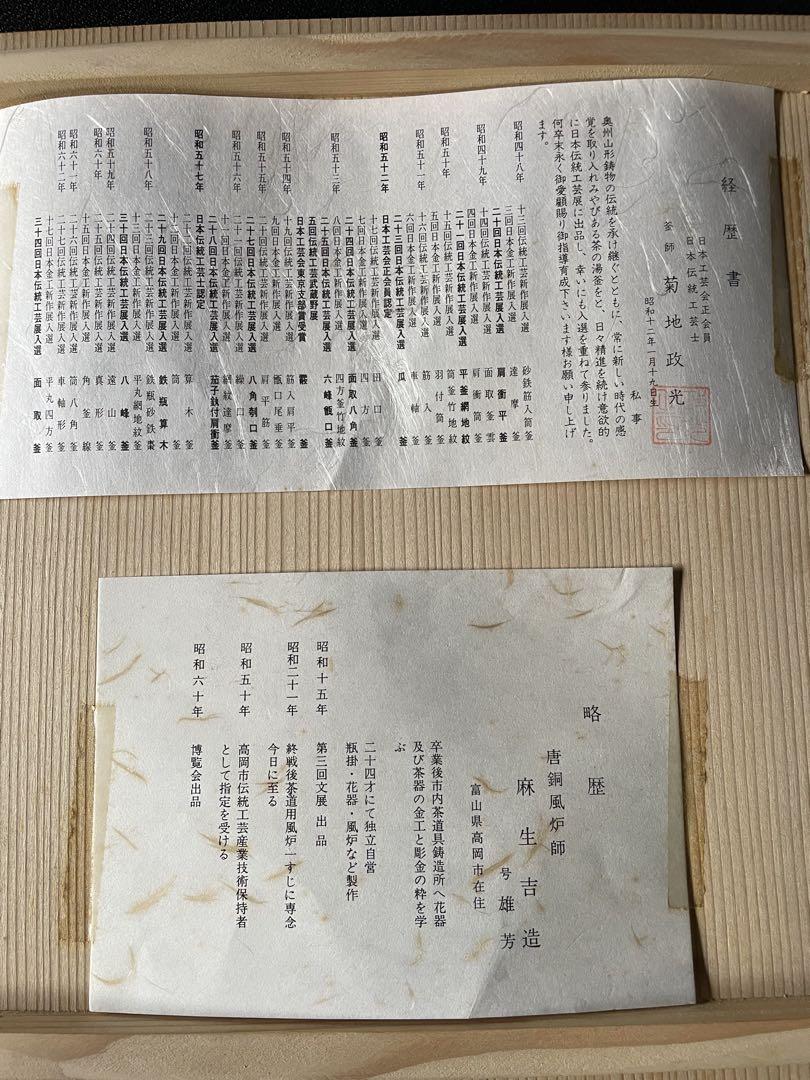 経歴書
日本工芸会正会員
日本伝統工芸士
釜師 菊地政光
昭和十二年一月十九日生
私事
奥州山形鋳物の伝統を承け継ぐとともに、常に新しい時代の感
覚を取り入れみやびある茶の湯釜をと、日々精進を続け意欲的
に日本伝統工芸展に出品し、幸いにも入選を重ねて参りました。
何卒末永く御愛顧賜り御指導育成下さいます様お願い申し上げ
ます。
昭和四十八年 十三回伝統工芸新作展入選 砂鉄筋入筒釜
三回日本金工新作展入選 達摩釜
二十回日本伝統工芸展入選 肩衝平釜
昭和四十九年 十四回伝統工芸新作展入選 面取釜雲
四回日本金工新作展入選 肩衝筒釜
二十一回日本伝統工芸展入選 平釜網地紋
昭和五十年 十五回伝統工芸新作展入選 筒釜竹地紋
五回日本金工新作展入選 羽付筒釜
昭和五十一年 十六回伝統工芸新作展入選 筋入釜
六回日本金工新作展入選 車軸釜
二十三回日本伝統工芸展入選 瓜釜
昭和五十二年 日本工芸会正会員認定
十七回伝統工芸新作展入選 田口釜
七回日本金工新作展入選 四方釜
二十四回日本伝統工芸展入選 面取八角釜
昭和五十三年 八回日本金工新作展入選 四方釜竹地紋
二十五回日本伝統工芸展入選 六峰甑口釜
五回伝統工芸武蔵野展
日本工芸会東京支部賞受賞 霰釜
昭和五十四年 十九回伝統工芸新作展入選 筋入肩平釜
九回日本金工新作展入選 甑口尾垂釜
昭和五十五年 二十回伝統工芸新作展入選 肩平筋釜
二十七回日本伝統工芸展入選 八角刳口釜
昭和五十六年 二十一回伝統工芸新作展入選 繰口釜
十一回日本金工新作展入選 網紋達摩釜
二十八回日本伝統工芸展入選 茄子鐶付肩衝釜
昭和五十七年 日本伝統工芸士認定
十二回日本金工新作展入選 筒釜
二十二回伝統工芸新作展入選 算木釜
二十九回日本伝統工芸展入選 鉄瓶算木
昭和五十八年 二十三回伝統工芸新作展入選 鉄瓶砂鉄棗
十三回日本金工新作展入選 平丸網地紋釜
三十回日本伝統工芸展入選 八峰釜
昭和五十九年 二十四回伝統工芸新作展入選 遠山釜
昭和六十年 二十五回伝統工芸新作展入選 真形釜
十五回日本金工新作展入選 角釜線
昭和六十一年 二十六回伝統工芸新作展入選 筒八角釜
昭和六十二年 二十七回伝統工芸新作展入選 車軸形釜
十七回日本金工新作展入選 平丸四方釜
三十四回日本伝統工芸展入選 面取釜
略歴
唐銅風炉師
麻生吉造
号 雄芳
富山県高岡市在住
卒業後市内茶道具鋳造所へ花器
及び茶器の金工と彫金の粋を学
ぶ
二十四才にて独立自営
瓶掛・花器・風炉など製作
昭和十五年 第三回文展出品
昭和二十一年 終戦後茶道用風炉一すじに専念
今日に至る
昭和五十年 高岡市伝統工芸産業技術保持者
として指定を受ける
昭和六十年 博覧会出品